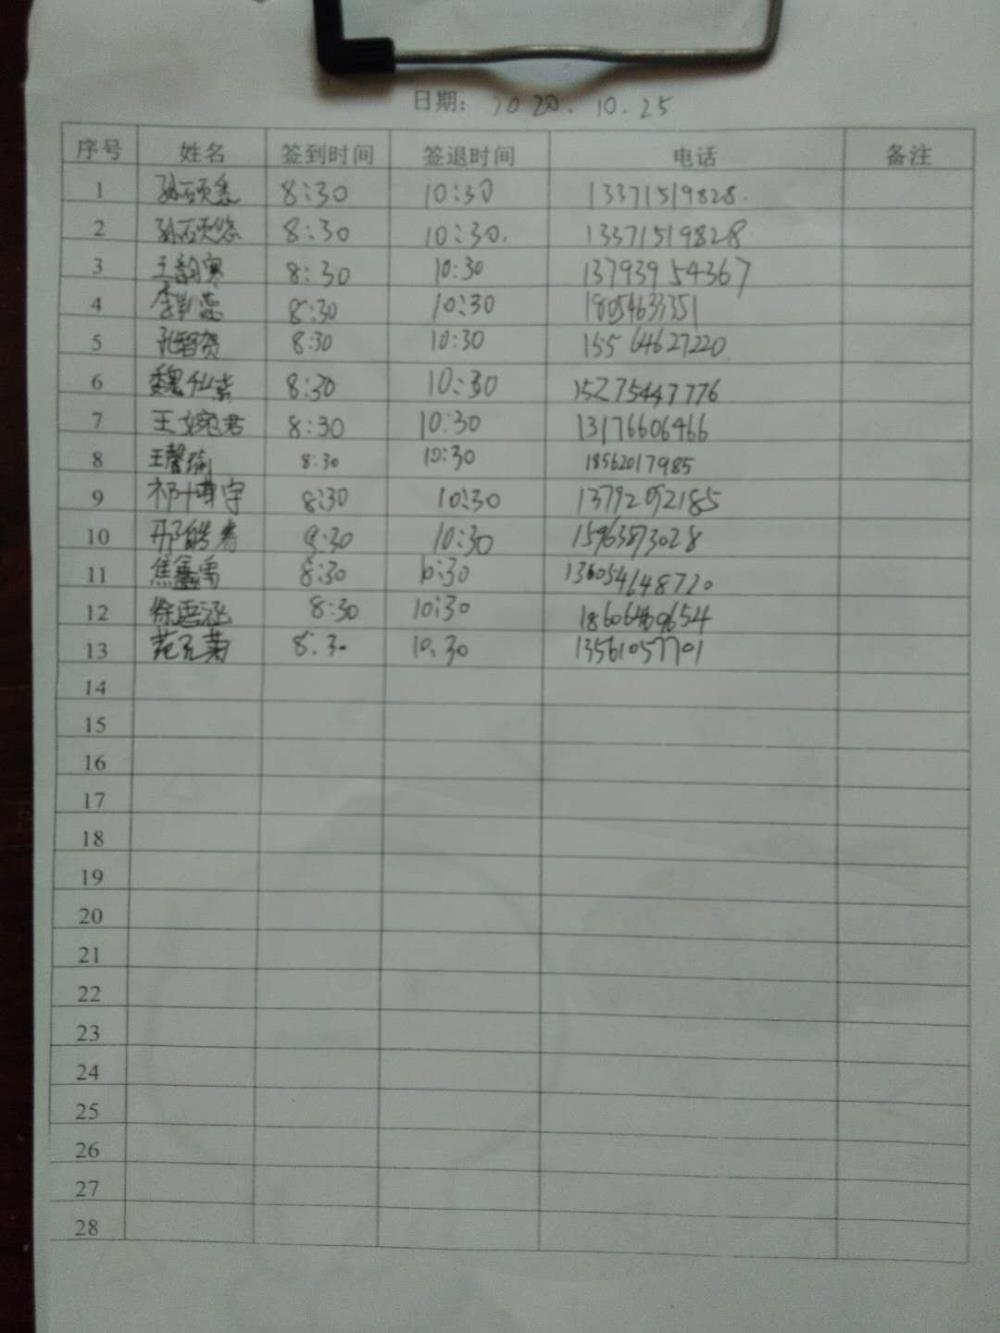 日期: 2020.10.25
序号 姓名 签到时间 签退时间 电话 备注
1 8:30 10:30 13371519828.
2 8:30 10:30. 13371519828
3 8:30 10:30 13793954367
4 8:30 10:30 18054633351
5 8:30 10:30 15564627220
6 魏 8:30 10:30 15275447776
7 王婉君 8:30 10:30 13176606466
8 王馨瑜 8:30 10:30 18562017985
9 8:30 10:30 13792092185
10 10:30 15963873028
11 焦鑫雨 8:30 10:30 136054648720
12 徐语涵 8:30 10:30
13 8:30 10:30 13561057701
14
15
16
17
18
19
20
21
22
23
24
25
26
27
28